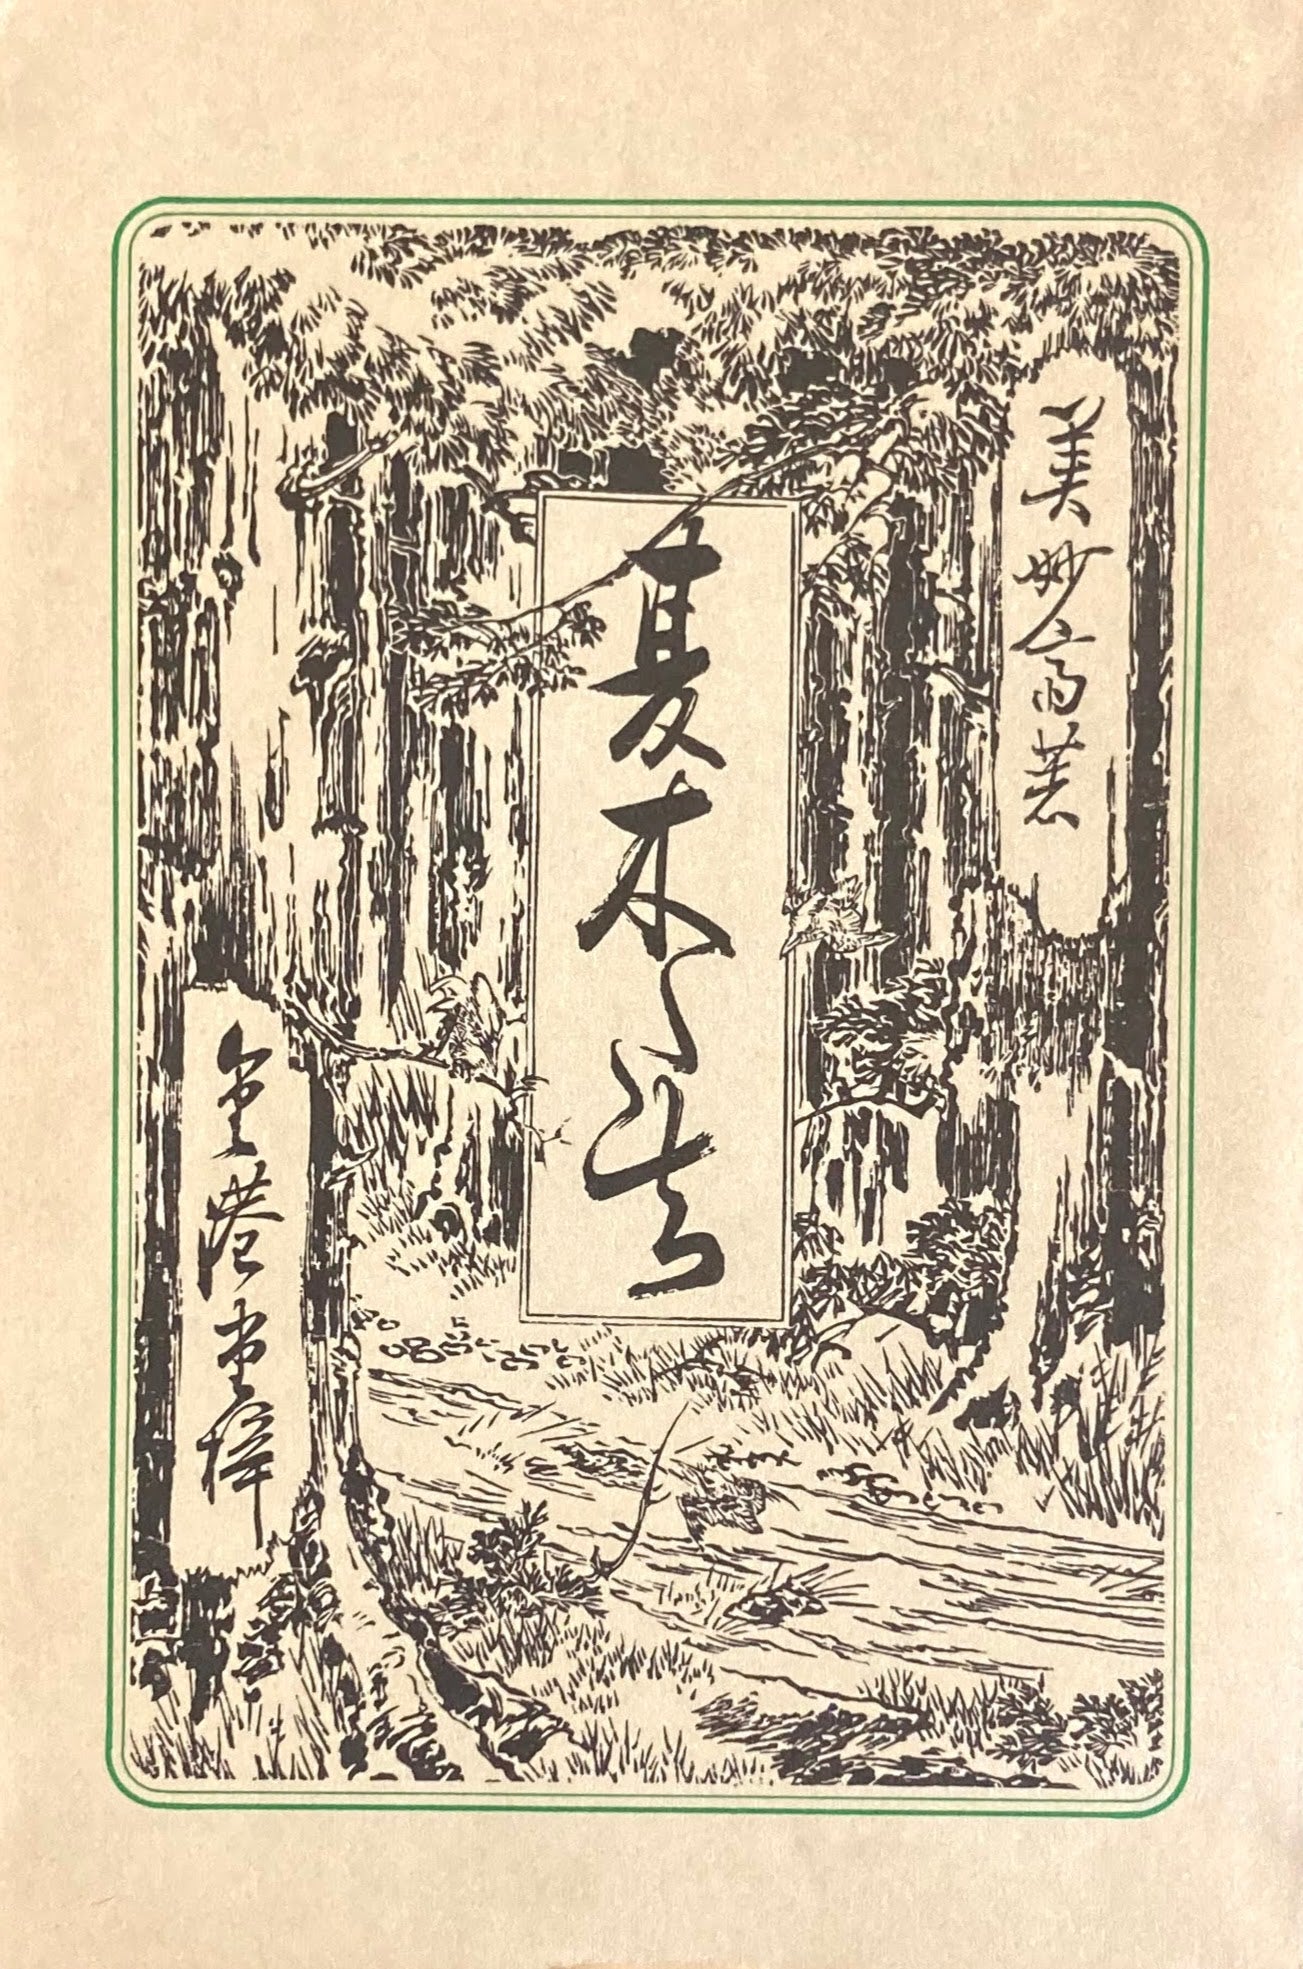 美妙斎著
夏木だち
金港堂梓